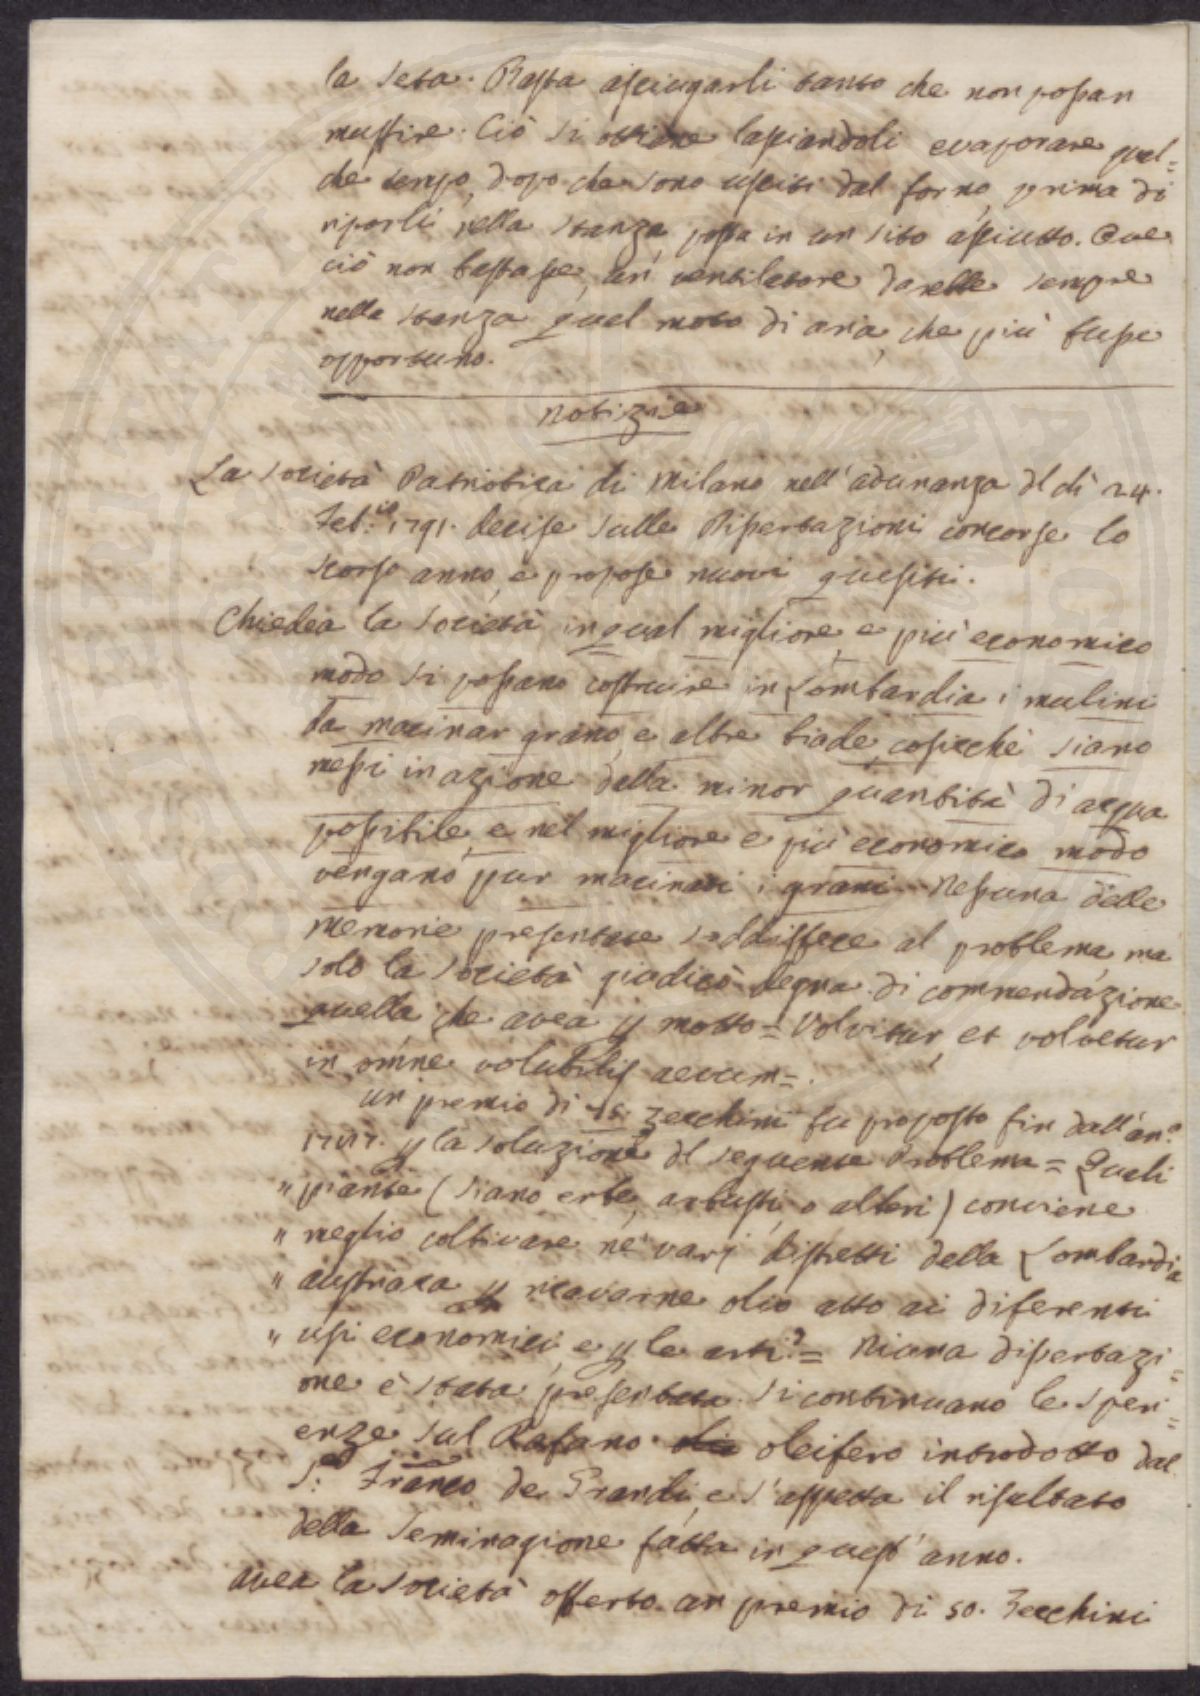 la seta. Basta asciugarli tanto che non possan
muffire. Ciò si ottiene lasciandoli evaporare qual=
che tempo, dopo che sono usciti dal forno, prima di
riporli nella stanza, posta in un sito asciutto. Ove
ciò non bastasse, un ventilatore darebbe sempre
nella stanza quel moto di aria, che più fusse
opportuno.
Notizie
La Società Patriotica di Milano nell'adunanza dl dì 24.
Feb.io 1791. decise sulle Dissertazioni concorse lo
scorso anno, e propose nuovi quesiti.
Chiedea la Società in qual migliore, e più economico
modo si possano costruire in Lombardia i mulini
da macinar grano, e altre biade, cosicchè siano
messi in azione dalla minor quantità di acqua
possibile, e nel migliore e più economico modo
vengano pur macinati i grani. Nessuna delle
memorie presentate soddisfece al problema, ma
solo la Società giudicò degna di commendazione
quella, che avea p motto = Volvitur, et volvetur
in omne volubilis aevum =.
un premio di 75. zecchini fu proposto fin dall'an.o
1787. p la soluzione dl seguente Problema = Quali
" piante (siano erbe, arbusti, o alberi) conviene
" meglio coltivare ne' varj distretti della Lombardia
" austriaca p ricavarne olio atto ai diferenti
" usi economici, e p le arti? = Niuna dissertazi=
one è stata presentata. Si continuano le speri=
enze sul Rafano oleifero introdotto dal
S.r Franco de Grandi, e s'aspetta il risultato
della seminagione fatta in quest'anno.
avea la Società offerto un premio di 50. Zecchini